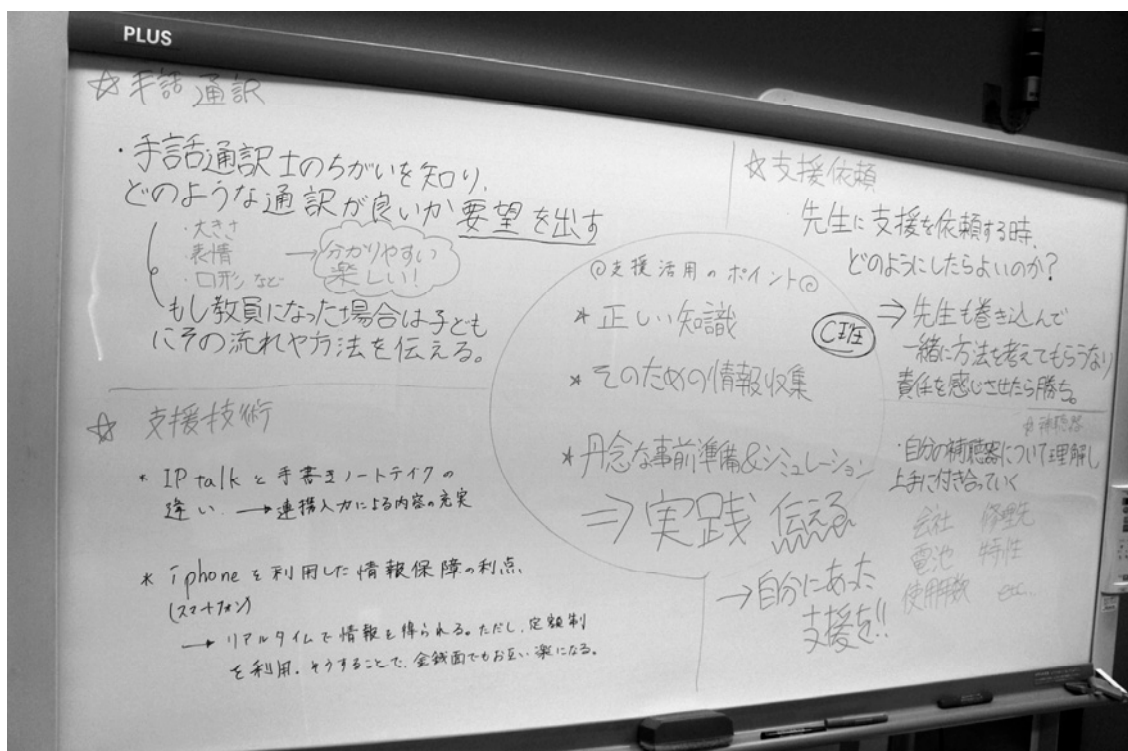 PLUS
☆手話通訳
・手話通訳士のちがいを知り、
どのような通訳が良いか要望を出す
・大きさ
・表情
・口形など
→分かりやすい
楽しい!
もし教員になった場合は子ども
にその流れや方法を伝える。
☆支援技術
* IP talk と手書きノートテイクの
違い. →連携入力による内容の充実
* iphoneを利用した情報保障の利点
(スマートフォン)
→リアルタイムで情報を得られる。ただし、定額制
を利用。そうすることで、金銭面でもお互い楽になる。
◎支援活用のポイント◎
*正しい知識
*そのための情報収集
*丹念な事前準備&シミュレーション
⇒実践 伝える
→自分にあった
支援を!!
☆支援依頼
先生に支援を依頼する時、
どのようにしたらよいのか?
⇒先生も巻き込んで
一緒に方法を考えてもらうなり
責任を感じさせたら勝ち。
☆補聴器
・自分の補聴器について理解し
上手に付き合っていく
会社 修理先
電池 特性
使用年数 etc...